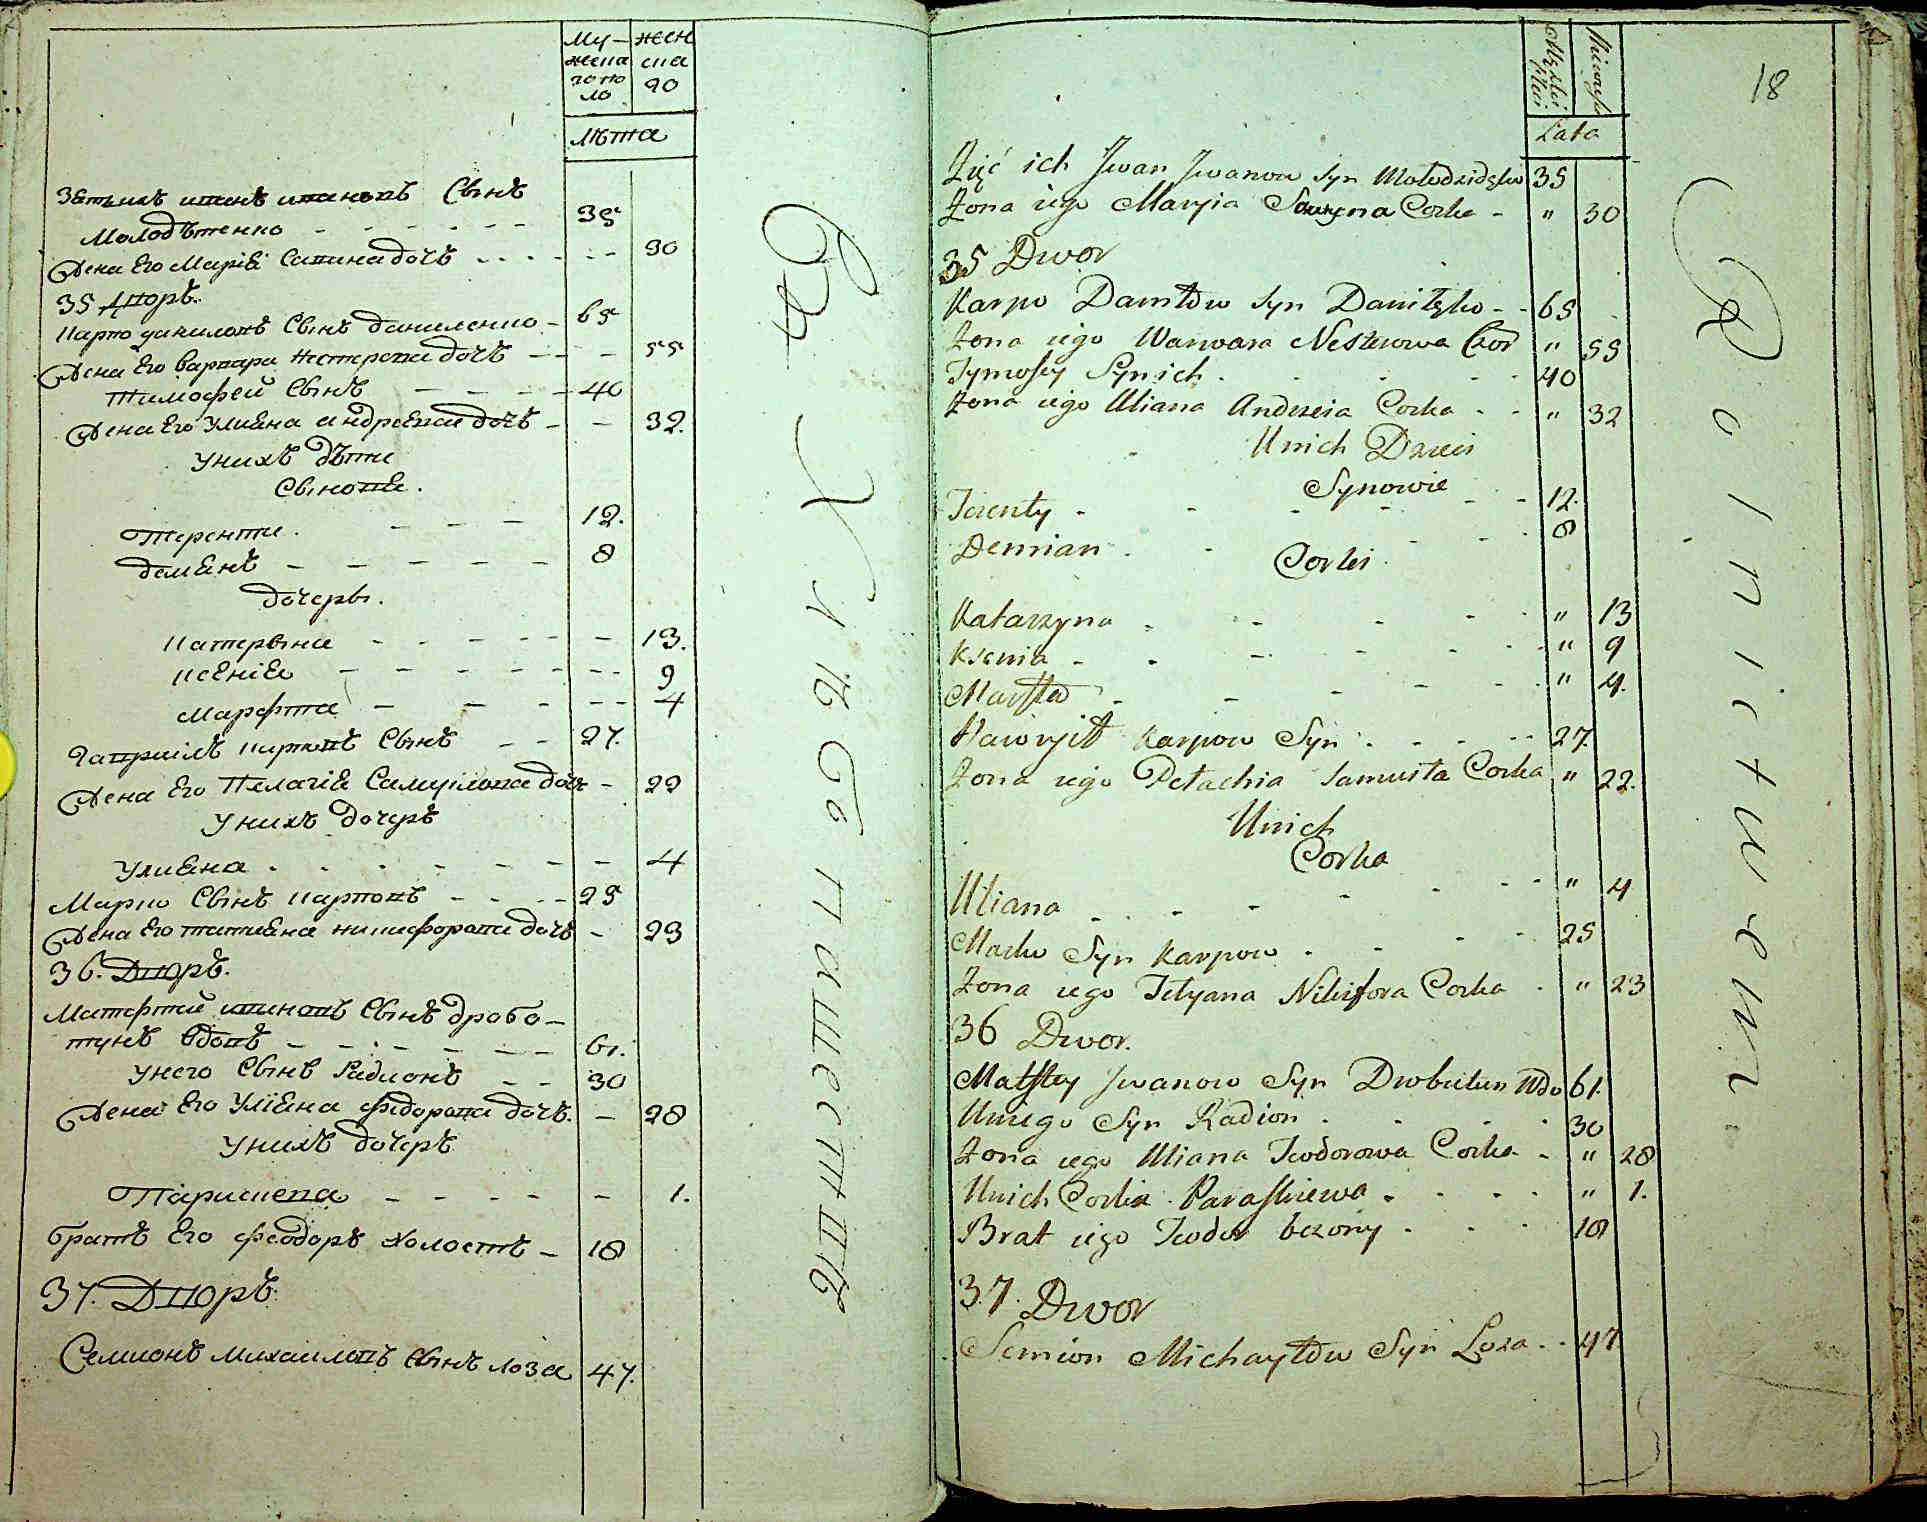 Му-
жеска
го по
ло
жен
ска
го
Лѣта
Зять ихъ иванъ ивановъ Сынъ
Молодѣтенко 35
Жена Его Маріѣ Савина дочь 30
35 Дворъ.
Карпо даниловъ Сынъ даниленко 65
Жена Его варвара нестерова дочь 55
тимофей Сынъ 40
Жена Его Улиѣна андреева дочь 32.
у нихъ дѣти
Сынове.
Теренти. 12.
демѣнъ 8
дочеры.
Катерына 13.
ксеніѣ 9
Марфта 4
Гавриилъ карповъ Сынъ 27.
Жена Его Пелагіѣ Самуилова дочь 22
у нихъ дочерь
улиѣна 4
Марко Сынъ карповъ 25
Жена Его татиѣна никифорова дочь 23
36. Дворъ.
Матфтей ивановъ Сынъ дробо-
тунъ вдовъ 61.
у него Сынъ Радионъ 30
Жена Его Улиѣна фѣдорова дочь. 28
у нихъ дочерь
Параскева 1.
братъ Его феодоръ холостъ 18
37. Дворъ
Семионъ михаиловъ Сынъ лоза 47.
18
Męzkiei
płci
Lata
Zięć ich Jwan Jwanow Syn Mołodzidęko 35
Żona iego Maryia Sawyna Corka - " 30
35 Dwor
Karpo Daniłow Syn Daniłęko - - 65
Żona iego Warwara Nesterowa Cor " 55
Tymofiy Syn ich 40
Żona iego Uliana Andreia Corka - - " 32
U nich Dzieci
Synowie
Terenty - 12.
Demian 8
Corki
Katarzyna " 13
Ksenia - " 9
Marfta " 4.
Hawryił Karpow Syn 27.
Żona iego Pełachia Samuiła Corka " 22.
U nich
Corka
Uliana " 4
Marko Syn Karpow 25
Żona iego Tetyana Nikifora Corka " 23
36 Dwor.
Matftey Jwanow Syn Drobutun Wdo 61.
U niego Syn Radion 30
Żona iego Uliana Teodorowa Corka - " 28
U nich Corka Paraskiewa " 1.
Brat iego Teodor bezony 18
37. Dwor
Semion Michayłow Syn Loza - - 47